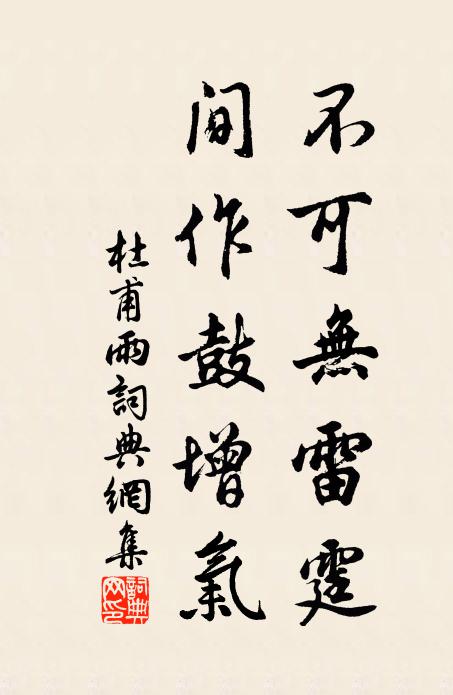 不可無雷霆
间作鼓增氣
杜甫雨詞典網集
詞典网印